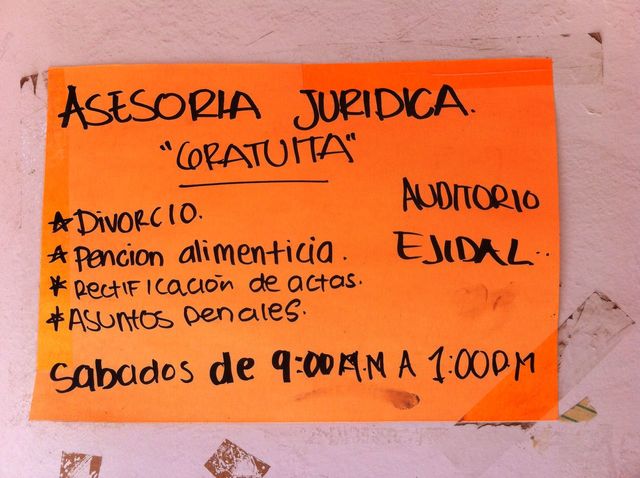 ASESORIA JURIDICA.
"GRATUITA"
* DIVORCIO.
* Pencion alimenticia.
* RECTIFICACIÓN de actas.
* ASUNTOS PENALES.
AUDITORIO
EJIDAL..
Sabados de 9:00 A.M A 1:00 P.M